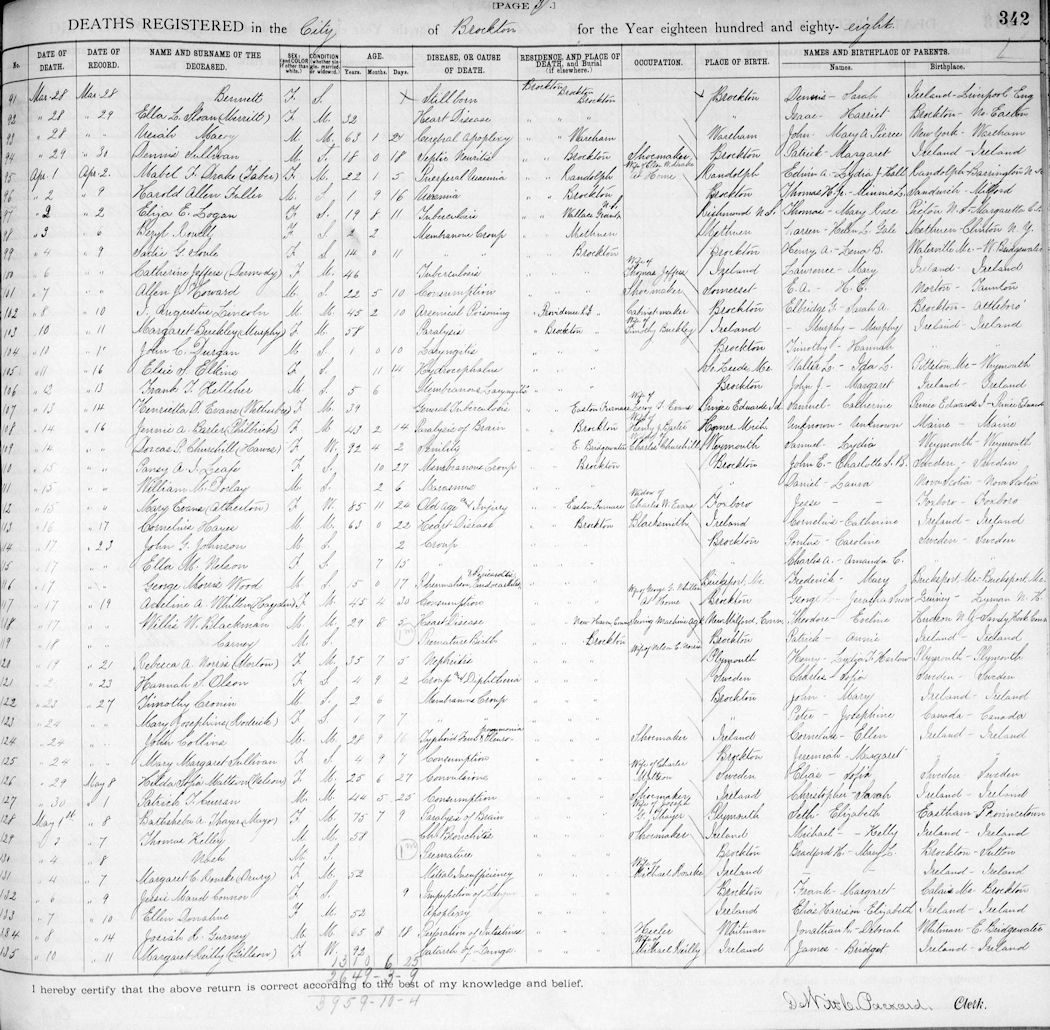 [PAGE 31.]
DEATHS REGISTERED in the City of Brockton for the Year eighteen hundred and eighty-eight. 342
No. DATE OF DEATH. DATE OF RECORD. NAME AND SURNAME OF THE DECEASED. SEX; and COLOR if other than white. CONDITION (whether single, married, or widowed. AGE. Years. Months. Days. DISEASE, OR CAUSE OF DEATH. RESIDENCE, AND PLACE OF DEATH, and Burial (if elsewhere.) OCCUPATION. PLACE OF BIRTH. NAMES AND BIRTHPLACE OF PARENTS. Names. Birthplace.
91 Mar 28 Mar 28 Bennett F. S. Stillborn Brockton Brockton Brockton Brockton Dennis - Sarah Ireland - Liverpool Eng
92 " 28 " 29 Ella L. Sloan (Merritt) F. M. 32 Heart Disease " Isaac - Harriet Brockton - No Easton
93 " 28 " " Uriah Macy M. M. 63 1 24 Cerebral Apoplexy " Wareham Wareham John - Mary A Pierce New York - Wareham
94 " 29 " 30 Dennis Sullivan M. S. 18 0 18 Septic Neuritis " Brockton Shoemaker Brockton Patrick - Margaret Ireland - Ireland
95 Apr. 1 Apr. 2 Mabel F. Drake (Faber) F. M. 22 5 Puerperal Uraemia " Randolph At Home Randolph Edwin A - Lydia J Hall Randolph - Barrington N H
96 " 2 " 9 Harold Allen Fuller M. S. 1 9 16 " Brockton Brockton Thomas H. Jr - Minnie L. Sandwich - Milford
97 " 2 " 2 Eliza E. Logan F. S. 19 8 11 Tuberculosis " Wallace Richmond N.S. Thomas - Mary Rose
98 " 3 " 6 Beryl Rowell F. S. 2 2 Membranous Croup " Methuen Methuen Warren - Helen L. Gale Methuen - Clinton N.Y.
99 " 4 " 9 Sadie G. Soule F. S. 14 0 11 " " " Brockton Brockton Henry A - Lena B. Waterville Me - W. Bridgewater
100 " 6 " " Catherine Jeffers (Dormody) F. M. 46 Tuberculosis Wife of Thomas Jeffers Ireland Lawrence - Mary Ireland - Ireland
101 " 7 " " Allen J. Howard M. S. 22 5 10 Consumption Shoemaker Somerset E. A. - H. E. Norton - Taunton
102 " 8 " 10 J. Augustus Lincoln M. M. 45 2 10 Arsenical Poisoning " Providence R.I. " Cabinet maker Brockton Elbridge G - Sarah A. Brockton - Attleboro'
103 " 10 " 11 Margaret Buckley (Murphy) F. M. 58 Paralysis " Brockton " Wife of Timothy Buckley Ireland - Murphy - Murphy Ireland - Ireland
104 " 10 " 11 John C. Durgan M. S. 1 0 10 Laryngitis Brockton Timothy - Hannah
105 " 11 " 16 Elsie S. Elkins F. S. 11 14 Hydrocephalus No Leeds Me Walter L. - Ida L. Litteton, Me - Weymouth
106 " 12 " 13 Frank T. Kelliher M. S. 5 6 Membranous Laryngitis Brockton John J - Margaret Ireland - Ireland
107 " 13 " 14 Henrietta D Evans (Wetherbee) F. M. 39 General Tuberculosis " Easton Furnace Wife of Leroy T. Evans Prince Edwards Id. Samuel - Catherine Prince Edwards I - Prince Edwards
108 " 14 " 16 Jennie A Easter (Philbrick) F. M. 43 2 14 Paralysis of Brain " Brockton Wife of Homer Mich. Unknown - Unknown Maine - Maine
109 " 14 " " Dorcas P. Churchill (Hawes) F. W. 92 4 2 Senility E. Bridgewater Charles Churchill Weymouth Samuel - Lydia Weymouth - Weymouth
110 " 15 " " Pansy A. I. Leafe F. S. 10 27 Membranous Croup " Brockton Brockton John E. - Charlotte S. B. Sweden - Sweden
111 " 15 " " William M. Dorlay M. S. 2 6 Marasmus " Daniel - Laura Nova Scotia - Nova Scotia
112 " 15 " " Mary Evans (Atherton) F. W. 85 11 24 Old age and Injury " Easton Furnace Widow of Charles W. Evans Foxboro Jesse - Foxboro - Foxboro
113 " 16 " 17 Cornelius Hayes M. M. 63 0 22 Heart Disease " Brockton Blacksmith Ireland Cornelius - Catherine Ireland - Ireland
114 " 17 " 23 John G. Johnson M. S. 2 Croup Brockton Pontus - Caroline Sweden - Sweden
115 " 17 " " Ella M. Nelson F. S. 7 15 " " Charles A. - Amanda C.
116 " 17 " " George Morris Wood M. S. 15 0 17 Rheumatism, Endocarditis & Pericarditis Bucksport, Me. Frederick - Mary Bucksport Me - Bucksport Me.
117 " 17 " 19 Adeline A Whitten (Hayden) F. M. 45 4 30 Consumption Wife of Geo. F. Whitten At Home Brockton George L. Quincy - Lyman N. H.
118 " 17 " " Willis W. Blackman M. M. 29 8 2 Heart Disease " New Haven, Conn Sewing Machine Agt. New Milford, Conn. Theodore - Eveline Hudson N.Y. - Sandy Hook Conn
119 " 18 " " Carney M. S. Premature Birth Brockton Brockton Patrick - Annie Ireland - Ireland
120 " 19 " 21 Rebecca A Norris (Morton) F. M. 35 7 5 Nephritis Wife of Nelson E. Norris Plymouth Henry - Lydia F. Harlow Plymouth - Plymouth
121 " 21 " 23 Hannah S. Olson F. S. 4 9 2 Croup and Diphtheria Sweden Charles - Sofia Sweden - Sweden
122 " 23 " 27 Timothy Cronin M. S. 2 6 Membranous Croup Brockton John - Mary Ireland - Ireland
123 " 24 " " Mary Josephine (Roderick) F. S. 1 7 7 " " Peter - Josephine Canada - Canada
124 " 24 " " John Collins M. M. 28 9 10 Typhoid Fever & Pleuro-pneumonia Shoemaker Ireland Cornelius - Ellen Ireland - Ireland
125 " 24 " " Mary Margaret Sullivan F. S. 4 9 7 Consumption Brockton Jeremiah - Margaret " "
126 " 29 May 8 Hilda Sofia Mattson (Nelson) F. M. 25 6 27 Convulsions Wife of Charles Mattson Sweden Elias - Sofia Sweden - Sweden
127 " 30 " 1 Patrick F. Curran M. M. 44 5 25 Consumption Shoemaker Ireland Christopher - Sarah Ireland - Ireland
128 May 1st " 8 Bathsheba A. Thayer (Mayo) F. M. 73 7 9 Paralysis of Brain Wife of Joseph Thayer Plymouth Seth - Elizabeth Eastham - Provincetown
129 " 3 " 7 Thomas Kelley M. M. 58 Ch. Bronchitis Shoemaker Ireland Michael - Kelly Ireland - Ireland
130 " 4 " 8 M. S. Premature Brockton Bradford H. - Mary L. Brockton - Sutton
131 " 4 " 7 Margaret E. Rourke (Drury) F. M. 52 Mitral Insufficiency Wife of Michael Rourke Ireland Ireland - Ireland
132 " 6 " 9 Jessie Maud Connor F. S. 9 Brockton Frank - Margaret Calais Me - Brockton
133 " 7 " 10 Ellen Donahue F. M. 52 Apoplexy Ireland Elizabeth Ireland - Ireland
134 " 8 " 14 Josiah R. Gurney M. M. 65 3 18 of Intestine Heeler Whitman Jonathan - Deborah Whitman - E. Bridgewater
135 " 10 " 11 Margaret Reilly (Gillson) F. W. 92 Catarrh of Lungs Wife of Michael Reilly Ireland James - Bridget Ireland - Ireland
1310 6 25
2649-3-9
3959-10-4
I hereby certify that the above return is correct according to the best of my knowledge and belief.
De Witt C. Packard, Clerk.